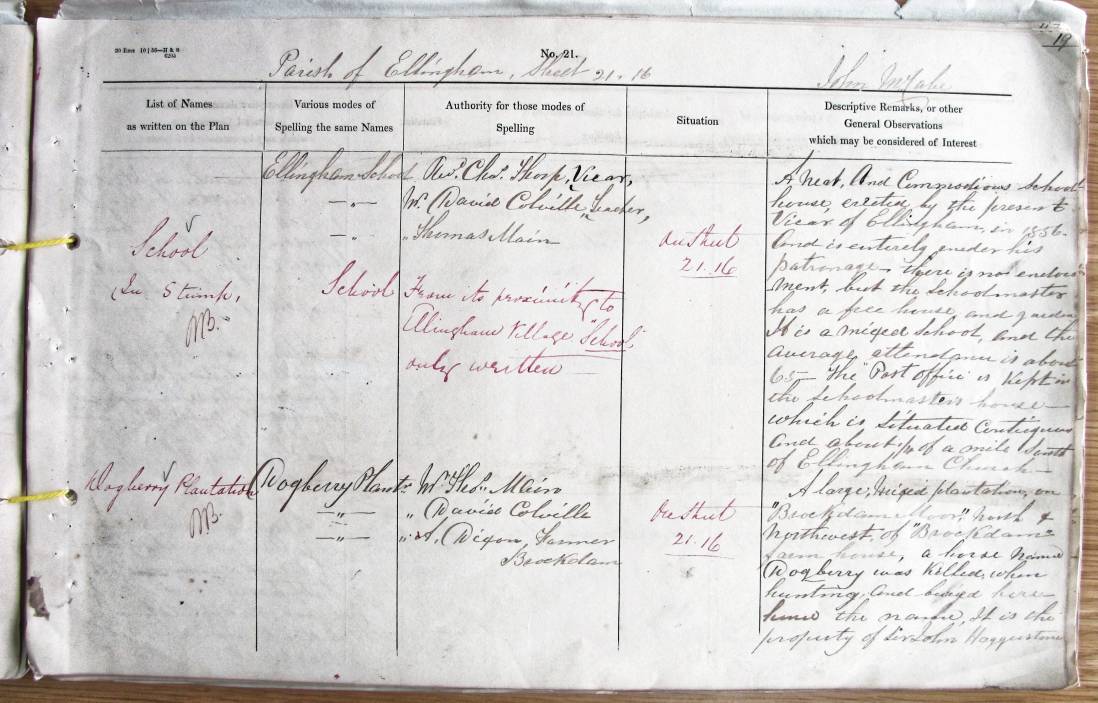 20 Rms 10 | 55—H & S
6205
No. 21.
19
Parish of Ellingham, Sheet 21.16
John McCabe
List of Names
as written on the Plan
Various modes of
Spelling the same Names
Authority for those modes of
Spelling
Situation
Descriptive Remarks, or other
General Observations
which may be considered of Interest
School
In Stump.
Ellingham School
— " —
— " —
School
Revd. Chas. Thorp, Vicar,
Mr. David Colville, Teacher,
" Thomas Main
From its proximity to
Ellingham Village "School"
only written —
On Sheet
21.16
A neat, And Commodious School
house, erected by the present
Vicar of Ellingham, in 1856.
And is entirely under his
patronage — there is no endow-
ment, but the Schoolmaster
has a free house, and garden
It is a mixed School, and the
average attendance is about
65 — The "Post office" is kept in
the Schoolmasters house —
which is, Situated Contiguous
And about 1/4 of a mile South
of Ellingham Church —
Dogberry Plantation
Dogberry Plantn.
— " —
— " —
Mr. Thos. Main
" David Colville
" A. Dixon, Farmer
Brockdam
On Sheet
21.16
A large, Mixed plantation, on
"Brockdam Moor," North &
Northwest of "Brockdam"
farm house, a horse name
Dogberry was Killed, when
hunting, And buried here
hence the name, It is the
property of Sir John Haggerstone